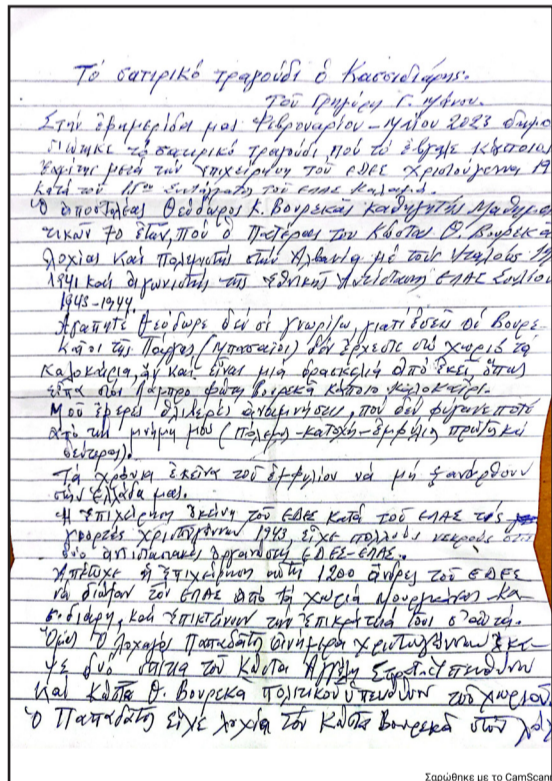 Τό σατιρικό τραγούδι ὁ Κασσιδιάρης.
Τοῦ Γρηγόρη Γ. Μάνου.
Στήν ἐφημερίδα μας Φεβρουαρίου - 2023 δημο
σιεύτηκε τό σατιρικό τραγούδι πού τό ἔβγαλε κάποιος
μετά τήν ἐπιχείρηση τοῦ ΕΔΕΣ Χριστούγεννα 19
κατά τοῦ 15ου Συντάγματος τοῦ ΕΛΑΣ Καλαμᾶ.
Ὁ ἀποστολέας Θεόδωρος Κ. Βουρεκᾶς καθηγητής Μαθημα
τικῶν 70 ἐτῶν, πού ὁ Πατέρας του Κώστας Θ. Βουρεκᾶ
λοχίας καί πολεμιστής στήν Ἀλβανία μέ τούς Ἰταλούς
1941 καί ἀγωνιστής τῆς Ἐθνικῆς Ἀντίστασης ΕΛΑΣ Σουλίου
1943-1944.
Ἀγαπητέ Θεόδωρε δέν σέ γνωρίζω, γιατί ἐσεῖς οἱ Βουρε
κᾶτοι τῆς Πάργας (Μπασταῖοι) δέν ἔρχεστε στό χωριό τά
καλοκαίρια, ἄν καί εἶναι μιά δρασκελιά ἀπό ἐκεῖ, ὅπως
εἶπα στόν Λάμπρο Φώτη Βουρεκᾶ κάποιο καλοκαίρι.
Μοῦ ἔφερες θλιβερές ἀναμνήσεις, πού δέν φύγανε ποτέ
ἀπό τήν μνήμη μου (πόλεμο-κατοχή-ἐμφύλιο πρῶτο καί
δεύτερο).
Τά χρόνια ἐκεῖνα τοῦ ἐμφυλίου νά μή ξανάρθουν
στήν Ἑλλάδα μας.
Ἡ ἐπιχείρηση ἐκείνη τοῦ ΕΔΕΣ κατά τοῦ ΕΛΑΣ τίς
γιορτές Χριστουγέννων 1943, εἶχε πολλούς νεκρούς στίς
δύο ἀντιστασιακές ὀργανώσεις ΕΔΕΣ-ΕΛΑΣ.
Ἀπέτυχε ἡ ἐπιχείρηση αὐτή 1200 ἄνδρες τοῦ ΕΔΕΣ
νά διώξουν τόν ΕΛΑΣ ἀπό τά χωριά Μουργκάνας Κα
σιδιάρη, καί ἐπεκτείνουν τήν ἐπικράτειά τους σ' αὐτά.
Ὅμως ὁ λοχαγός Παπαδάτος ἀνήμερα Χριστουγέννων ἔκα
ψε δυό σπίτια τοῦ Κώστα Ἀγγέλη Στρατ. Ὑπευθύνου
καί Κώστα Θ. Βουρεκᾶ πολιτικοῦ ὑπευθύνου τοῦ χωριοῦ.
Ὁ Παπαδάτος εἶχε λοχία τόν Κώστα Βουρεκᾶ στόν
Σαρώθηκε με το CamScann